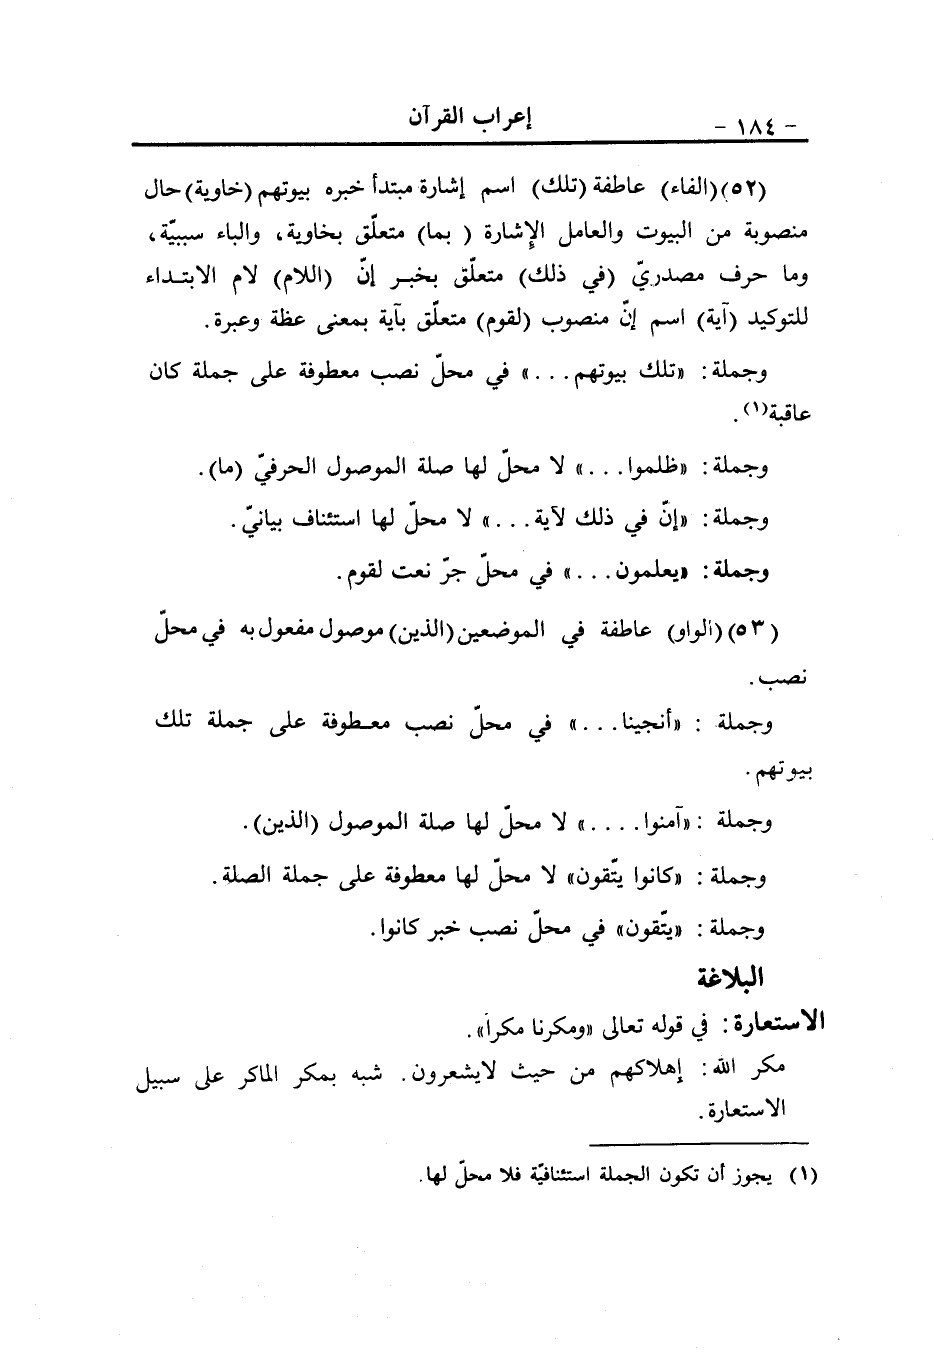 - ١٨٤ - إعراب القرآن
(٥٢)(الفاء) عاطفة (تلك) اسم إشارة مبتدأ خبره بيوتهم (خاوية)حال
منصوبة من البيوت والعامل الإشارة ( بما) متعلّق بخاوية، والباء سببيّة،
وما حرف مصدريّ (في ذلك) متعلّق بخبر إنّ (اللام) لام الابتداء
للتوكيد (آية) اسم إنّ منصوب (لقوم) متعلّق بآية بمعنى عظة وعبرة.
وجملة: «تلك بيوتهم...» في محلّ نصب معطوفة على جملة كان
عاقبة(١).
وجملة: «ظلموا...» لا محلّ لها صلة الموصول الحرفيّ (ما).
وجملة: «إنّ في ذلك لآية...» لا محلّ لها استئناف بيانيّ.
وجملة: «يعلمون...» في محلّ جرّ نعت لقوم.
(٥٣)(الواو) عاطفة في الموضعين(الذين)موصول مفعول به في محلّ
نصب.
وجملة : «أنجينا...» في محلّ نصب معطوفة على جملة تلك
بيوتهم.
وجملة :«آمنوا....» لا محلّ لها صلة الموصول (الذين).
وجملة : «كانوا يتّقون» لا محلّ لها معطوفة على جملة الصلة.
وجملة : «يتّقون» في محلّ نصب خبر كانوا.
البلاغة
الاستعارة: في قوله تعالى «ومكرنا مكراً».
مكر الله: إهلاكهم من حيث لايشعرون. شبه بمكر الماكر على سبيل
الاستعارة.
(١) يجوز أن تكون الجملة استئنافيّة فلا محلّ لها.